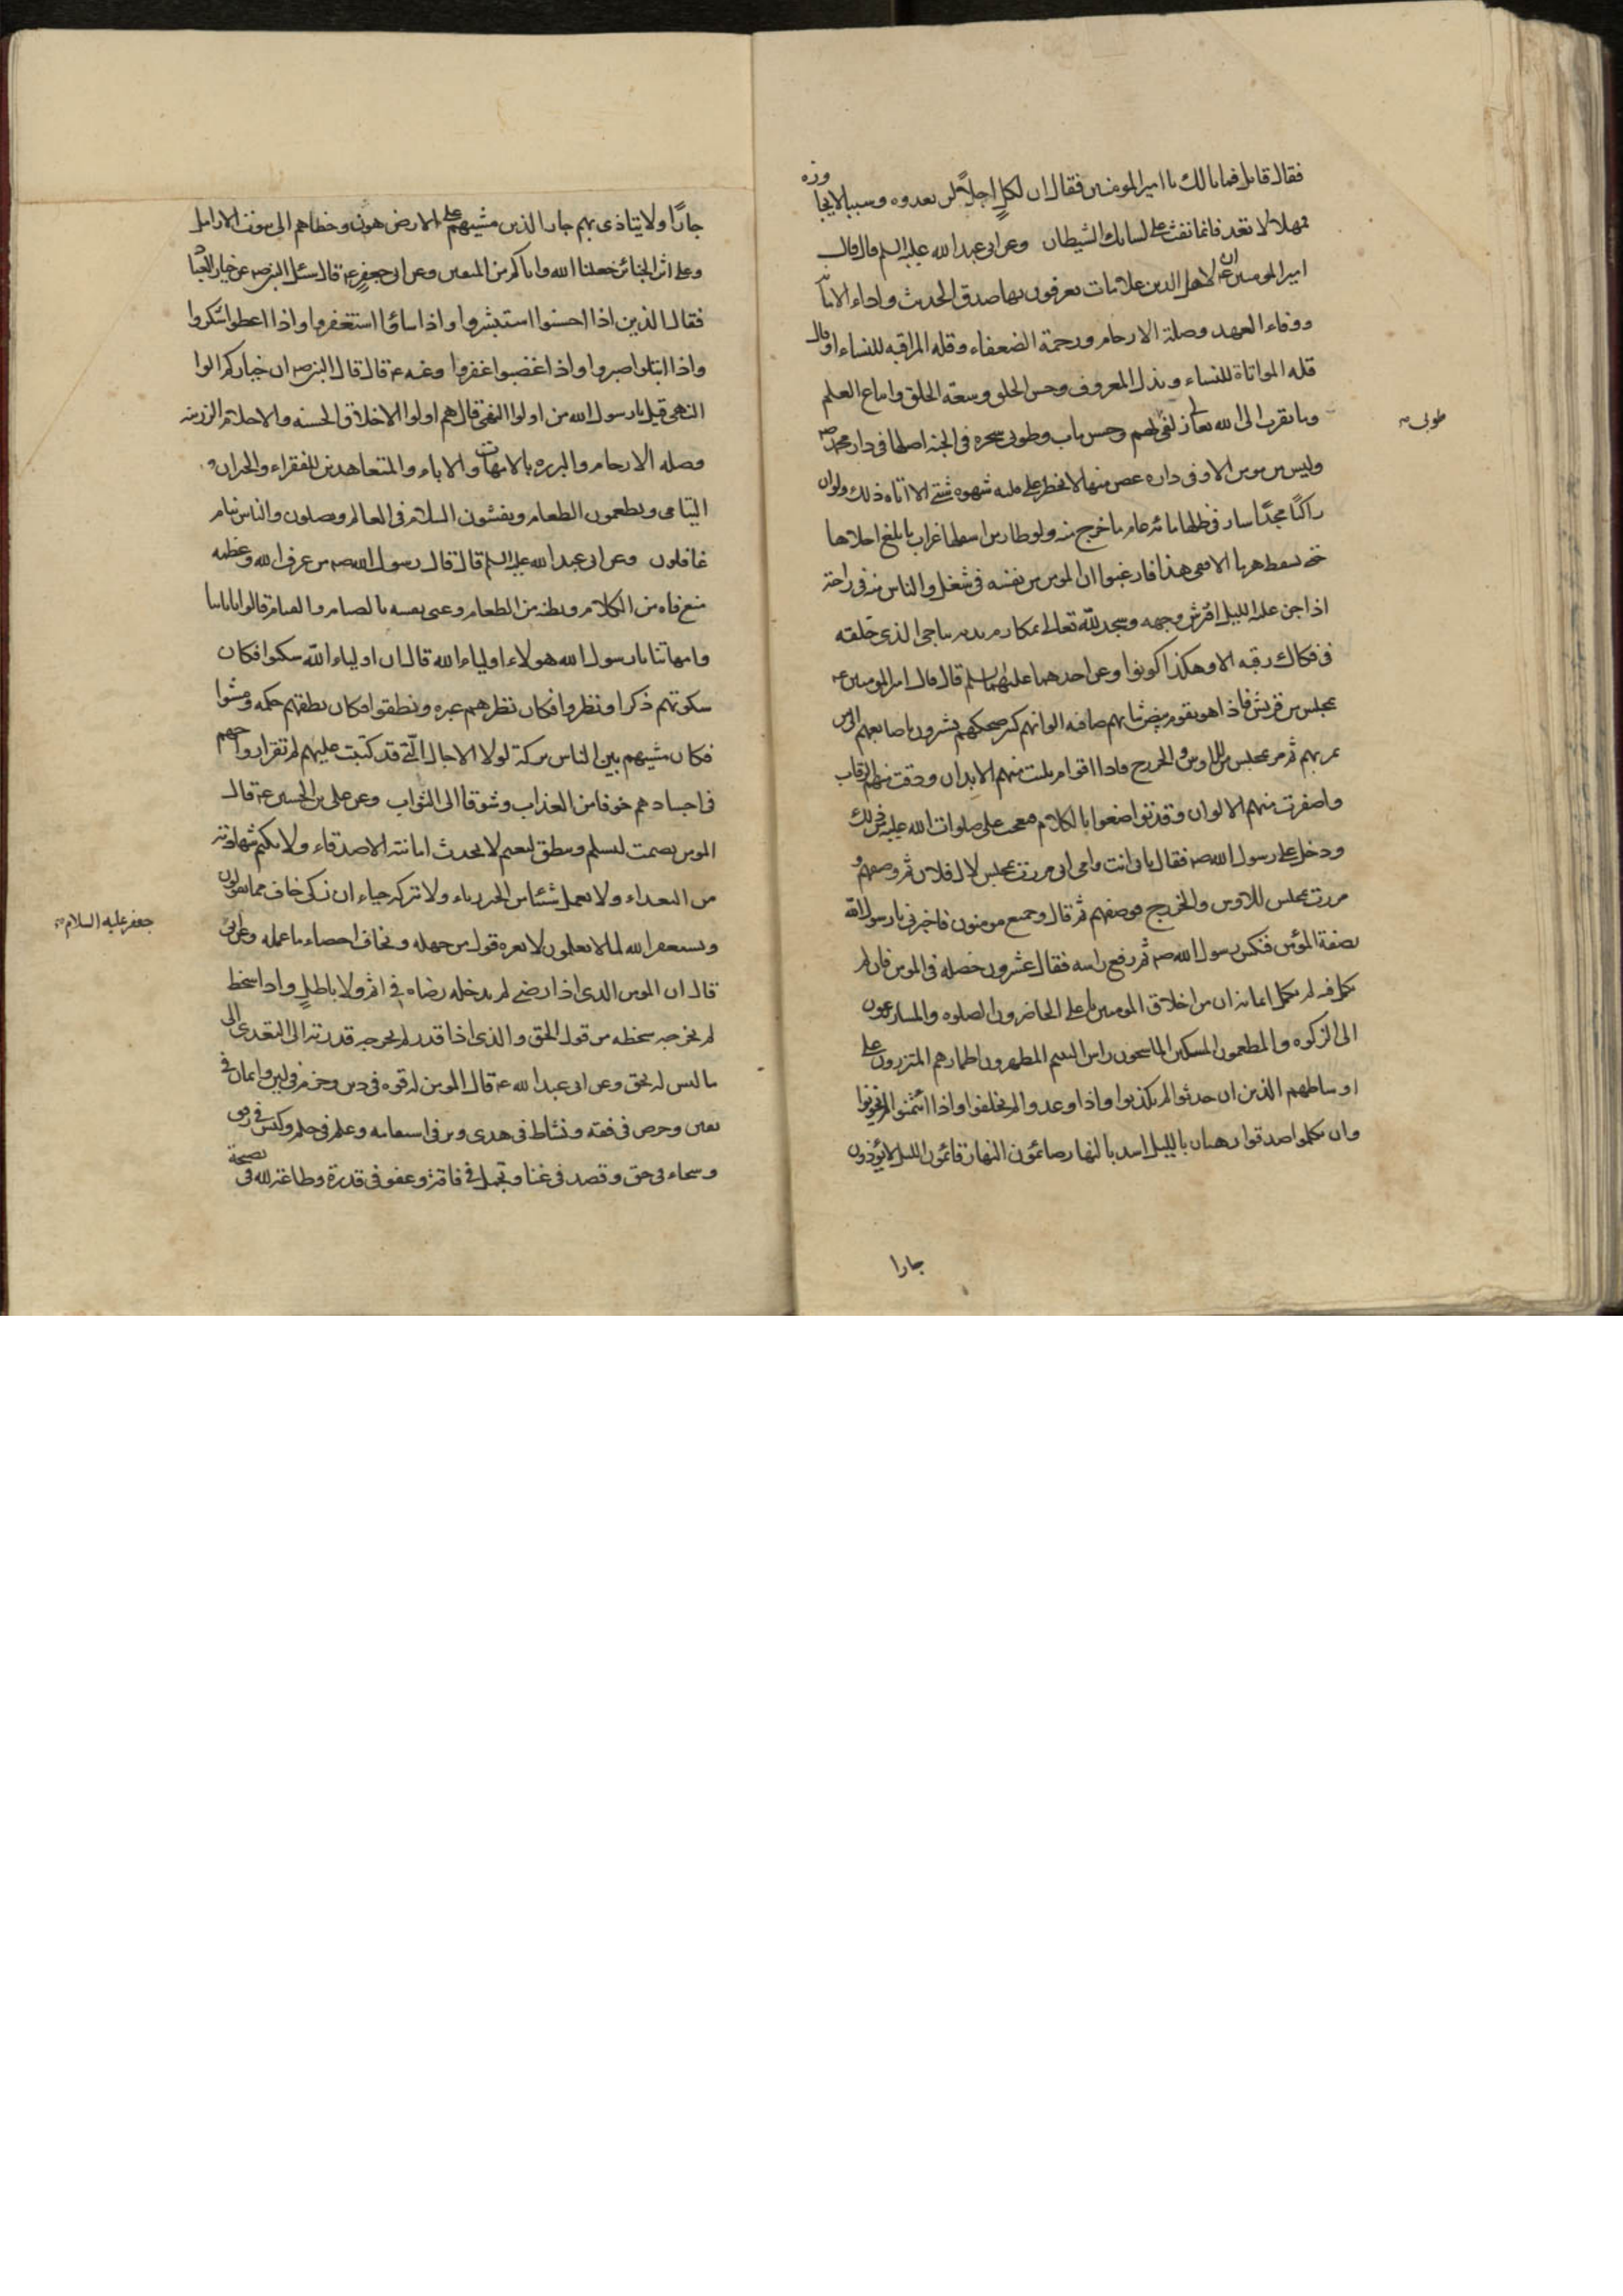 فقال قائل فما بالك يا امير المومنين فقال ان لكل اجلاً لن يعدوه وسببا لا يجاوزه
فمهلا لا تعد فانما نفث على لسانك الشيطان وعن ابي عبد الله عليه السلم قال قال
امير المومنين ع ان لاهل الدين علامات يعرفون بها صدق الحديث واداء الامانة
ووفاء العهد وصلة الارحام ورحمة الضعفاء وقله المراقبه للنساء او قال
قله المواتاة للنساء وبذل المعروف وحسن الخلق وسعة الخلق واتباع العلم
وما يقرب الى الله تعالى زلفى لهم وحسن ماب وطوبى شجره في الجنه اصلها في دار محمد ص
وليس من مومن الا وفي داره غصن منها لا يخطر على قلبه شهوه شئ الا اتاه ذلك ولو ان
راكبًا مجدًّا سار في ظلها مائة عام ما خرج منه ولو طار من اسفلها غراب ما بلغ اعلاها
حتى يسقط هرما الا ففي هذا فارغبوا ان المومن من نفسه في شغل والناس منه في راحة
اذا جن عليه الليل افترش وجهه وسجد لله تعالى بمكارم بدنه يناجي الذي خلقه
في فكاك رقبه الا وهكذا كونوا وعن احدهما عليهما السلم قال قال امير المومنين ع
بمجلس من قريش فاذا هو بقوم بيض ثيابهم صافيه الوانهم كثير ضحكهم يشيرون باصابعهم الى من
يمر بهم ثم مر بمجلس للاوس والخزرج فاذا اقوام بليت منهم الابدان ودقت منهم الرقاب
واصفرت منهم الالوان وقد تواضعوا بالكلام فعجب علي صلوات الله عليه من ذلك
ودخل على رسول الله ص فقال بابي انت وامي اني مررت بمجلس لال فلان ثم وصفهم و
مررت بمجلس للاوس والخزرج فوصفهم ثم قال وجميع مومنون فاخبرني يا رسول الله
بصفة المؤمن فنكس رسول الله ص ثم رفع راسه فقال عشرون خصله في المومن فان لم
تكمل فيه لم يكمل ايمانه ان من اخلاق المومنين يا علي الحاضرون الصلوه والمسارعون
الى الزكوه والمطعمون المسكين الماسحون راس اليتيم المطهرون اطمارهم المتزرون على
اوساطهم الذين ان حدثوا لم يكذبوا واذا وعدوا لم يخلفوا واذا ائتمنوا لم يخونوا
وان تكلموا صدقوا رهبان بالليل اسد بالنهار صائمون النهار قائمون الليل لا يؤذون
جارا
طوبى
جارًا ولا يتاذى بهم جار الذين مشيهم على الارض هون وخطاهم الى بيوت الارامل
وعلى اثر الجنائز جعلنا الله واياكم من المتقين وعن ابي جعفر ع قال سئل النبي ص عن خيار العباد
فقال الذين اذا احسنوا استبشروا واذا ساؤا استغفروا واذا اعطوا شكروا
واذا ابتلوا صبروا واذا غضبوا غفروا وعنه ع قال قال النبي ص ان خياركم الوا
النهى قيل يا رسول الله من اولوا النهى قال هم اولوا الاخلاق الحسنه والاحلام الرزينه
وصله الارحام والبرره بالامهات والاباء والمتعاهدين للفقراء والجيران و
اليتامى ويطعمون الطعام ويفشون السلام في العالم ويصلون والناس نيام
غافلون وعن ابي عبد الله عليه السلم قال قال رسول الله ص من عرف الله وعظمه
منع فاه من الكلام وبطنه من الطعام وعنى نفسه بالصيام والقيام قالوا بابائنا
وامهاتنا يا رسول الله هولاء اولياء الله قال ان اولياء الله سكتوا فكان
سكوتهم ذكرا ونظروا فكان نظرهم عبره ونطقوا فكان نطقهم حكمه ومشوا
فكان مشيهم بين الناس بركة لولا الاجال التي قد كتبت عليهم لم تقر ارواحهم
في اجسادهم خوفا من العذاب وشوقا الى الثواب وعن علي بن الحسين ع قال
المومن يصمت ليسلم وينطق ليغنم لا يحدث امانته الاصدقاء ولا يكتم شهادته
من البعداء ولا يعمل شئا من الخير رياء ولا يتركه حياء ان زكى خاف مما يقولون
ويستغفر الله لما لا يعلمون لا يغره قول من جهله ويخاف احصاء ما عمله وعن ابي
جعفر عليه السلام
قال ان المومن الذي اذا رضى لم يدخله رضاه في اثم ولا باطلٍ واذا سخط
لم يخرجه سخطه من قول الحق والذي اذا قدر لم يخرجه قدرته الى التعدى الى
ما ليس له بحق وعن ابي عبد الله ع قال المومن له قوه في دين وحزم في لين وايمان في
يقين وحرص في فقه ونشاط في هدى وبر في استقامه وعلم في حلم وكيس في رفق
وسخاء في حق وقصد في غنا وتجمل في فاقة وعفو في قدرة وطاعة لله في نصيحة